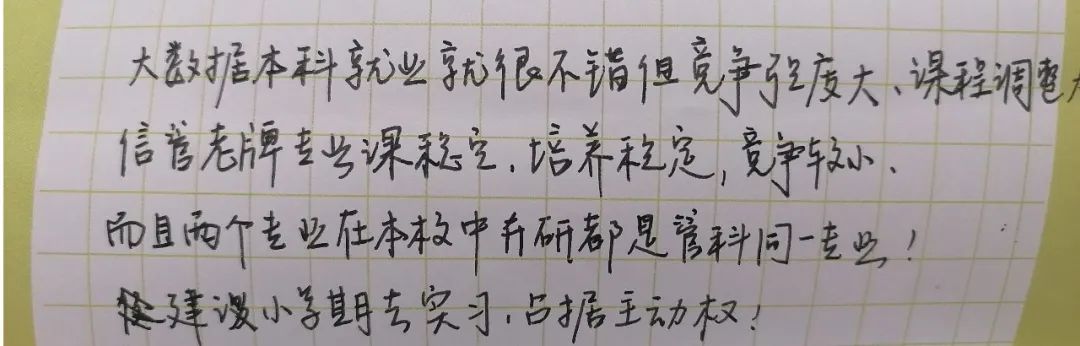 大数据本科就业就很不错但竞争强度大、课程调整大
信管老牌专业课稳定，培养稳定，竞争较小、
而且两个专业在本校中升研都是管科同一专业！
建议小学期去实习，占据主动权！